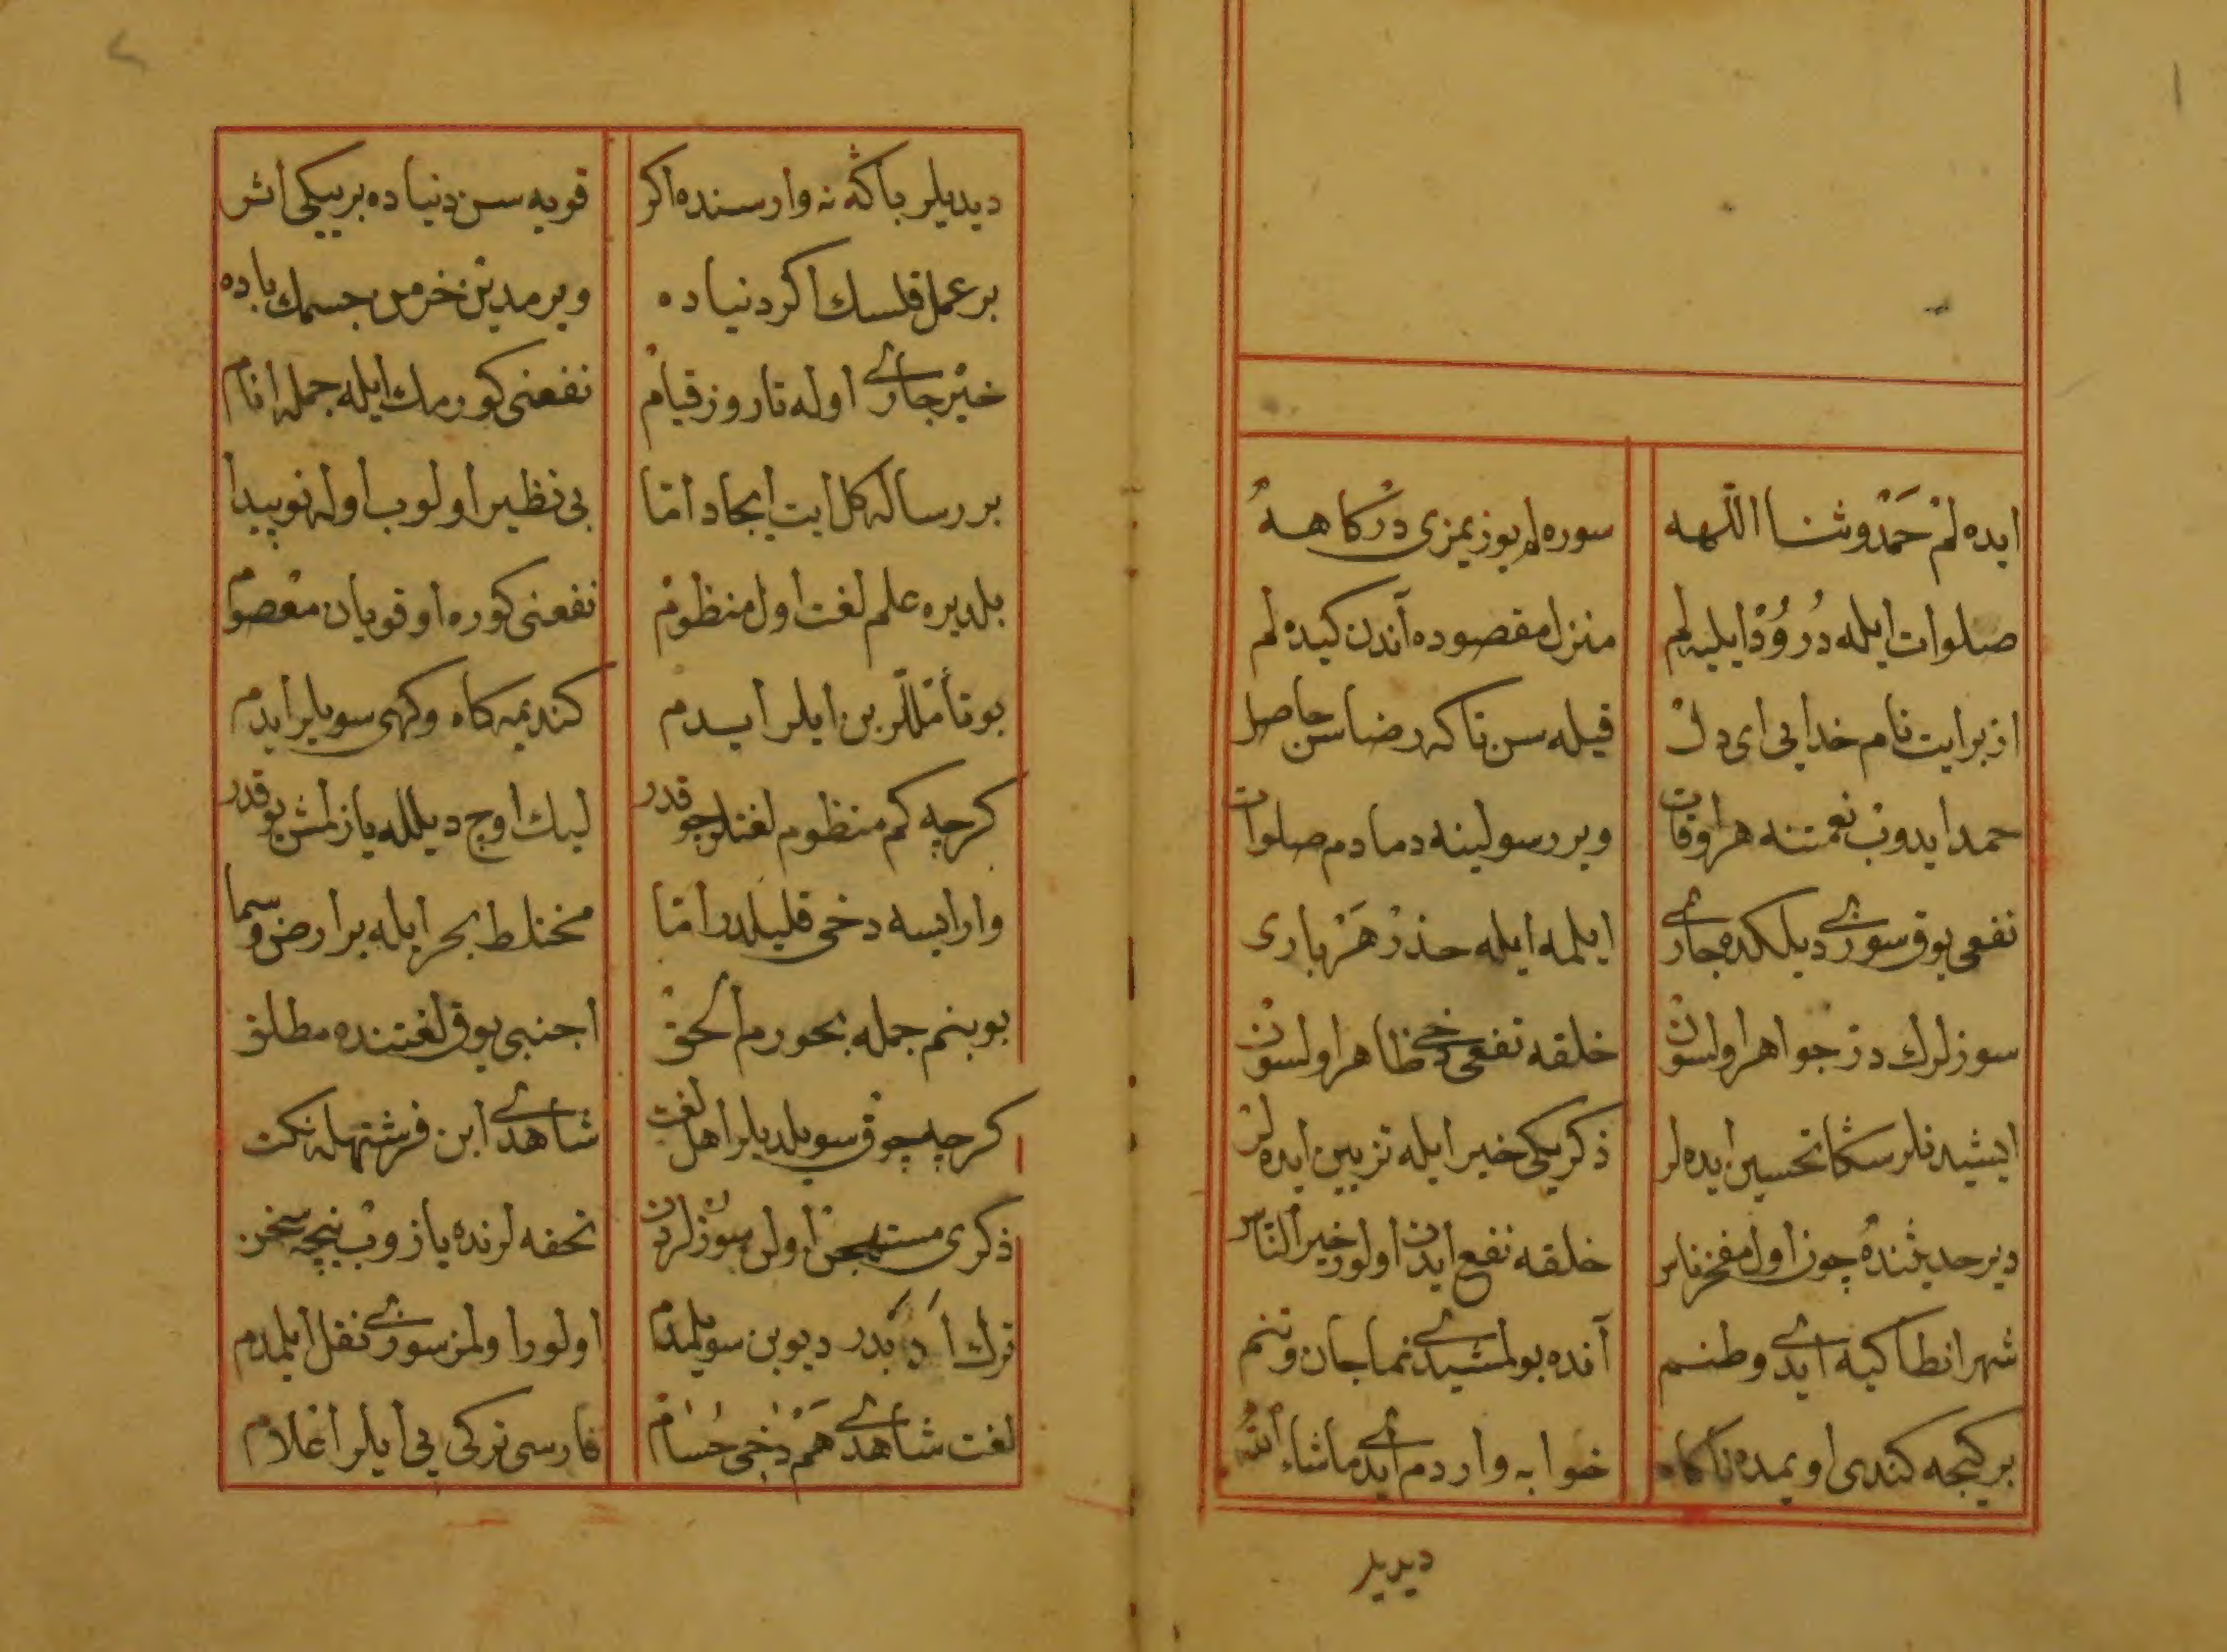 ایده لم حمد و ثنا اللهه سوره لم یوزیمزی درکاهه
صلوات ایله درود ایلیه لم منزل مقصوده آندن کیده لم
ازبر ایت نام خدایی ای دل قیله سن تاکه رضاسن حاصل
حمد ایدوب نعمتنه هر اوقات ویر رسولینه دمادم صلوات
نفعی یوق سوزی دیلکده جاری ایلمه ایله حذر هر باری
سوزلرك درّ جواهر اولسون خلقه نفعی دخی ظاهر اولسون
ایشیدنلر سڭا تحسین ایده لر ذکریکی خیر ایله تزیین ایده لر
دیر حدیثنده چون اول مفخر ناس خلقه نفع ایدن اولور خیر الناس
شهر انطاکیه ایدی وطنم آنده بولمشیدی نما جان و تنم
بر کیجه کندی اویمده ناکاه خوابه واردم ایدی ماشاء الله
دیدیلر
دیدیلر باڭه نه وار سنده اکر قویه سن دنیاده بر ییکی اثر
بر عمل قلسك اکر دنیاده ویرمدین خرمن جسمك باده
خیر جاری اوله تا روز قیام نفعنی کورمك ایله جمله انام
بر رساله کل ایت ایجاد امّا بی نظیر اولوب اوله نو پیدا
بلدیره علم لغت اول منظوم نفعنی کوره اوقویان معصوم
بو تأمّللر بن ایلر ایدم کندیمه کاه و کهی سویلر ایدم
کرچه کم منظوم لغتلر چوقدر لیك اوچ دیلله یازلمش یوقدر
وار ایسه دخی قلیلدر امّا مختلط بحر ایله بر ارض و سما
بو بنم جمله بحورم الحق اجنبی یوق لغتنده مطلق
کرچه چوق سویلدیلر اهل لغت شاهدی ابن فرشته یله نکت
ذکری مستهجن اولن سوزلردن تحفه لرنده یازوب نیچه سخن
ترك ادبدر دیو بن سویلمدم اولور اولمز سوزی نقل ایلمدم
لغت شاهدی هم دخی حسام فارسی ترکی یی ایلر اعلام